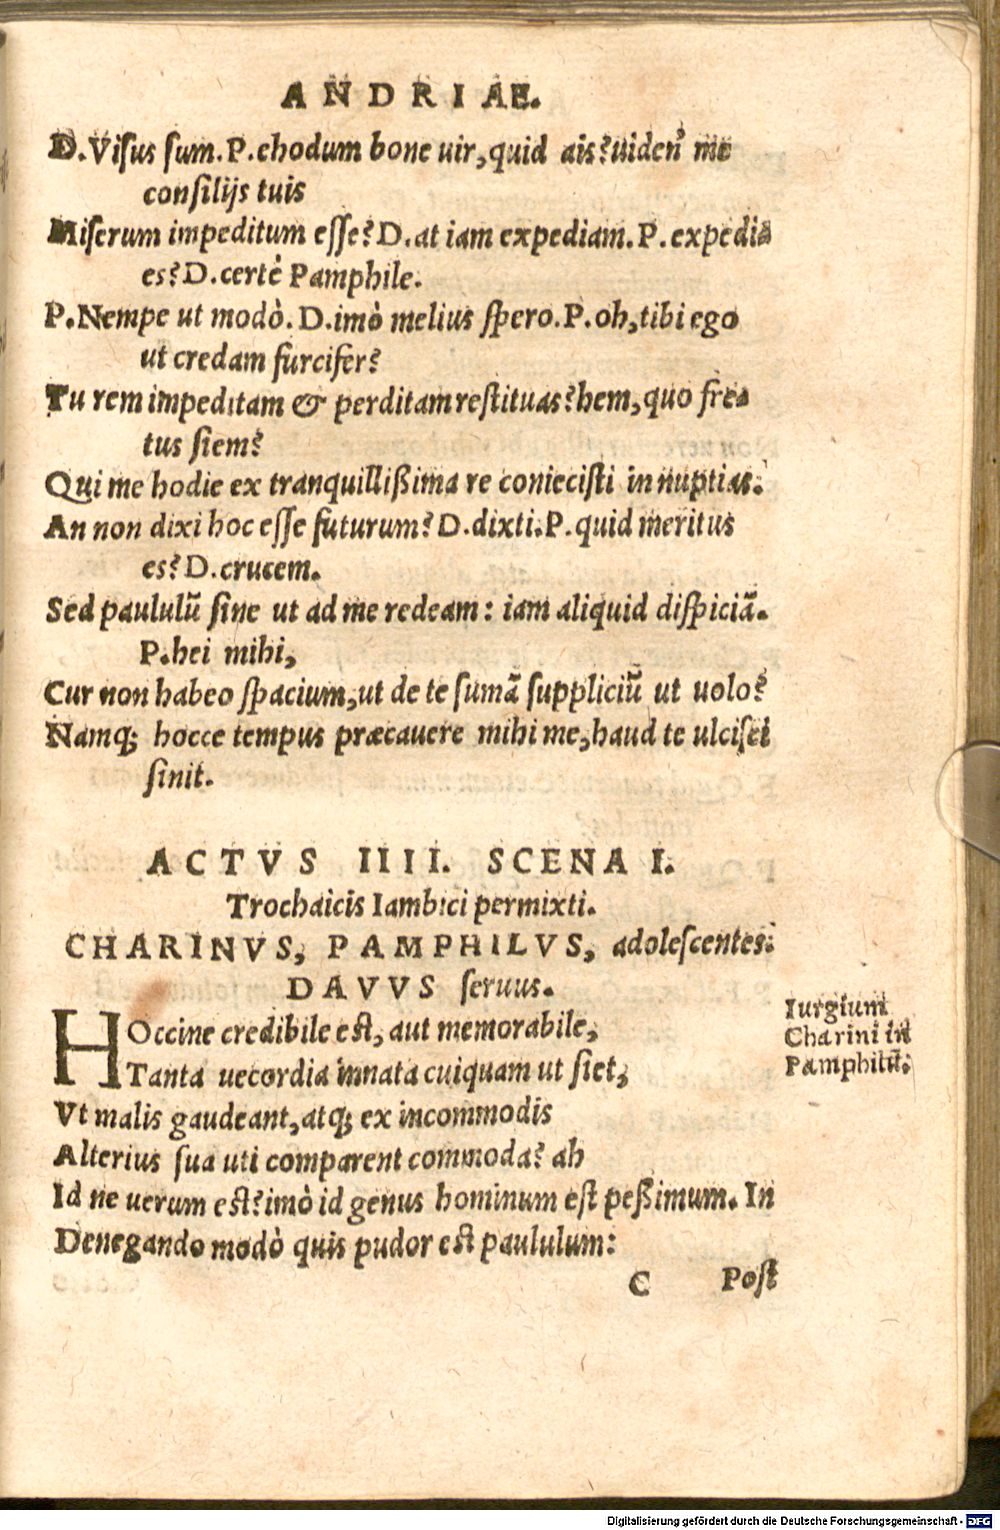 ANDRIAE.
D. Visus sum. P. ehodum bone uir, quid ais? uiden' me
consilijs tuis
Miserum impeditum esse? D. at iam expediam. P. expedia
es? D. certè Pamphile.
P. Nempe ut modò. D. imò melius spero. P. oh, tibi ego
ut credam furcifer?
Tu rem impeditam & perditam restituas? hem, quo fre=
tus siem?
Qui me hodie ex tranquillißima re coniecisti in nuptias.
An non dixi hoc esse futurum? D. dixti. P. quid meritus
es? D. crucem.
Sed paululũ sine ut ad me redeam: iam aliquid dispiciã.
P. hei mihi,
Cur non habeo spacium, ut de te sumã suppliciũ ut uolo?
Namq; hocce tempus præcauere mihi me, haud te ulcisci
sinit.
ACTVS IIII. SCENA I.
Trochaicis Iambici permixti.
CHARINVS, PAMPHILVS, adolescentes.
DAVVS seruus.
HOccine credibile est, aut memorabile,
Tanta uecordia innata cuiquam ut siet,
Vt malis gaudeant, atq; ex incommodis
Alterius sua uti comparent commoda? ah
Id ne uerum est? imò id genus hominum est peßimum. In
Denegando modò quis pudor est paululum:
Iurgium
Charini in
Pamphilũ.
C Post
Digitalisierung gefördert durch die Deutsche Forschungsgemeinschaft - DFG